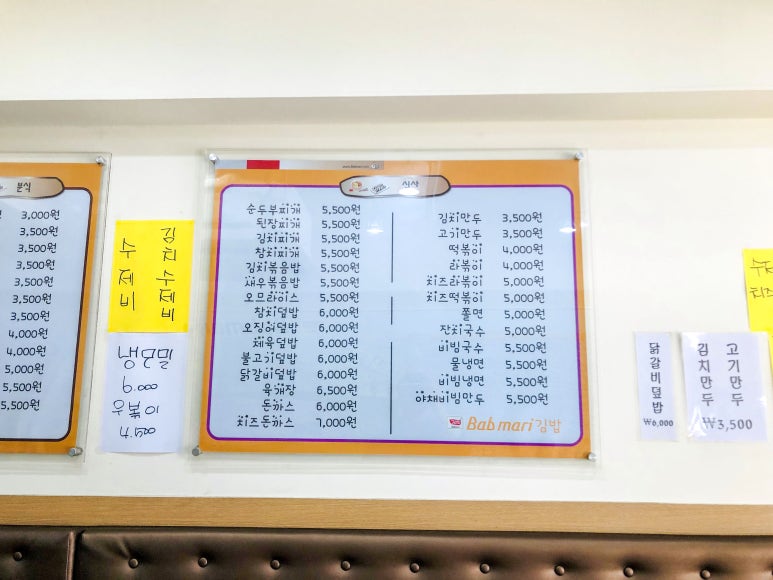 분식
3,000원
3,500원
3,500원
3,500원
3,500원
3,500원
3,500원
4,000원
4,000원
5,000원
5,500원
5,500원
수제비
김치수제비
냉모밀
6.000
식사
순두부찌개 5,500원
된장찌개 5,500원
김치찌개 5,500원
참치찌개 5,500원
김치볶음밥 5,500원
새우볶음밥 5,500원
오므라이스 5,500원
참치덮밥 6,000원
오징어덮밥 6,000원
제육덮밥 6,000원
불고기덮밥 6,000원
닭갈비덮밥 6,000원
육개장 6,500원
돈까스 6,000원
치즈돈까스 7,000원
김치만두 3,500원
고기만두 3,500원
떡볶이 4,000원
라볶이 4,000원
치즈라볶이 5,000원
치즈떡볶이 5,000원
쫄면 5,000원
잔치국수 5,000원
비빔국수 5,500원
물냉면 5,500원
비빔냉면 5,500원
야채비빔만두 5,500원
Bab mari 김밥
닭갈비덮밥
₩6,000
김치만두
고기만두
₩3,500
치즈